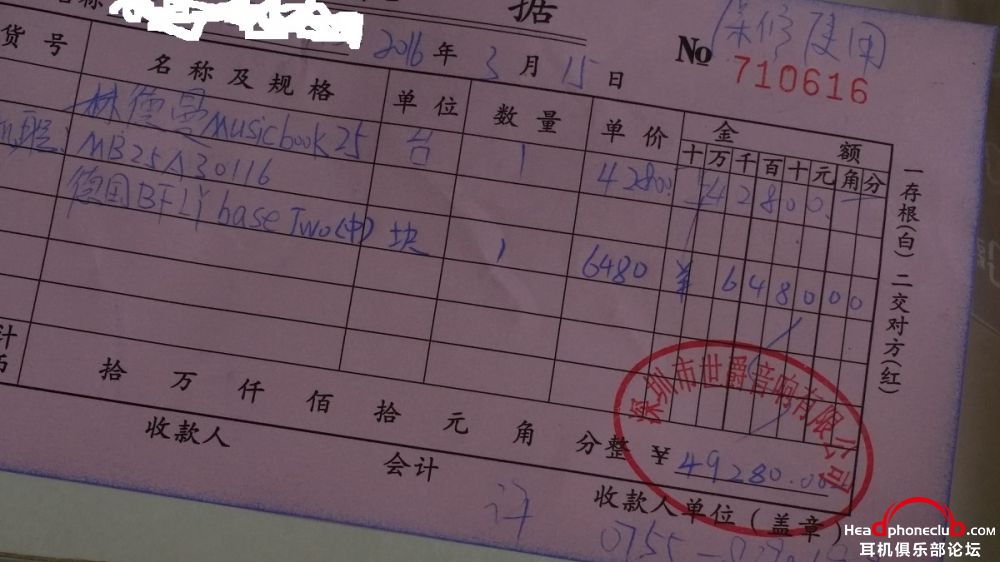 名称
据
保修使用
2016年3月15日
No 710616
货号 名称及规格 单位 数量 单价 金额
十万千百十元角分
林德曼Musicbook25 台 1 42800 ¥42800.
MB25A30116
德国BFLY base Two(中) 块 1 6480 ¥648000
拾万仟佰拾元角分整 ¥49280.00
收款人
会计
收款人单位(盖章)
许
0755-
一存根(白)二交对方(红)
深圳市世爵音响有限公司
Headphoneclub.com
耳机俱乐部论坛